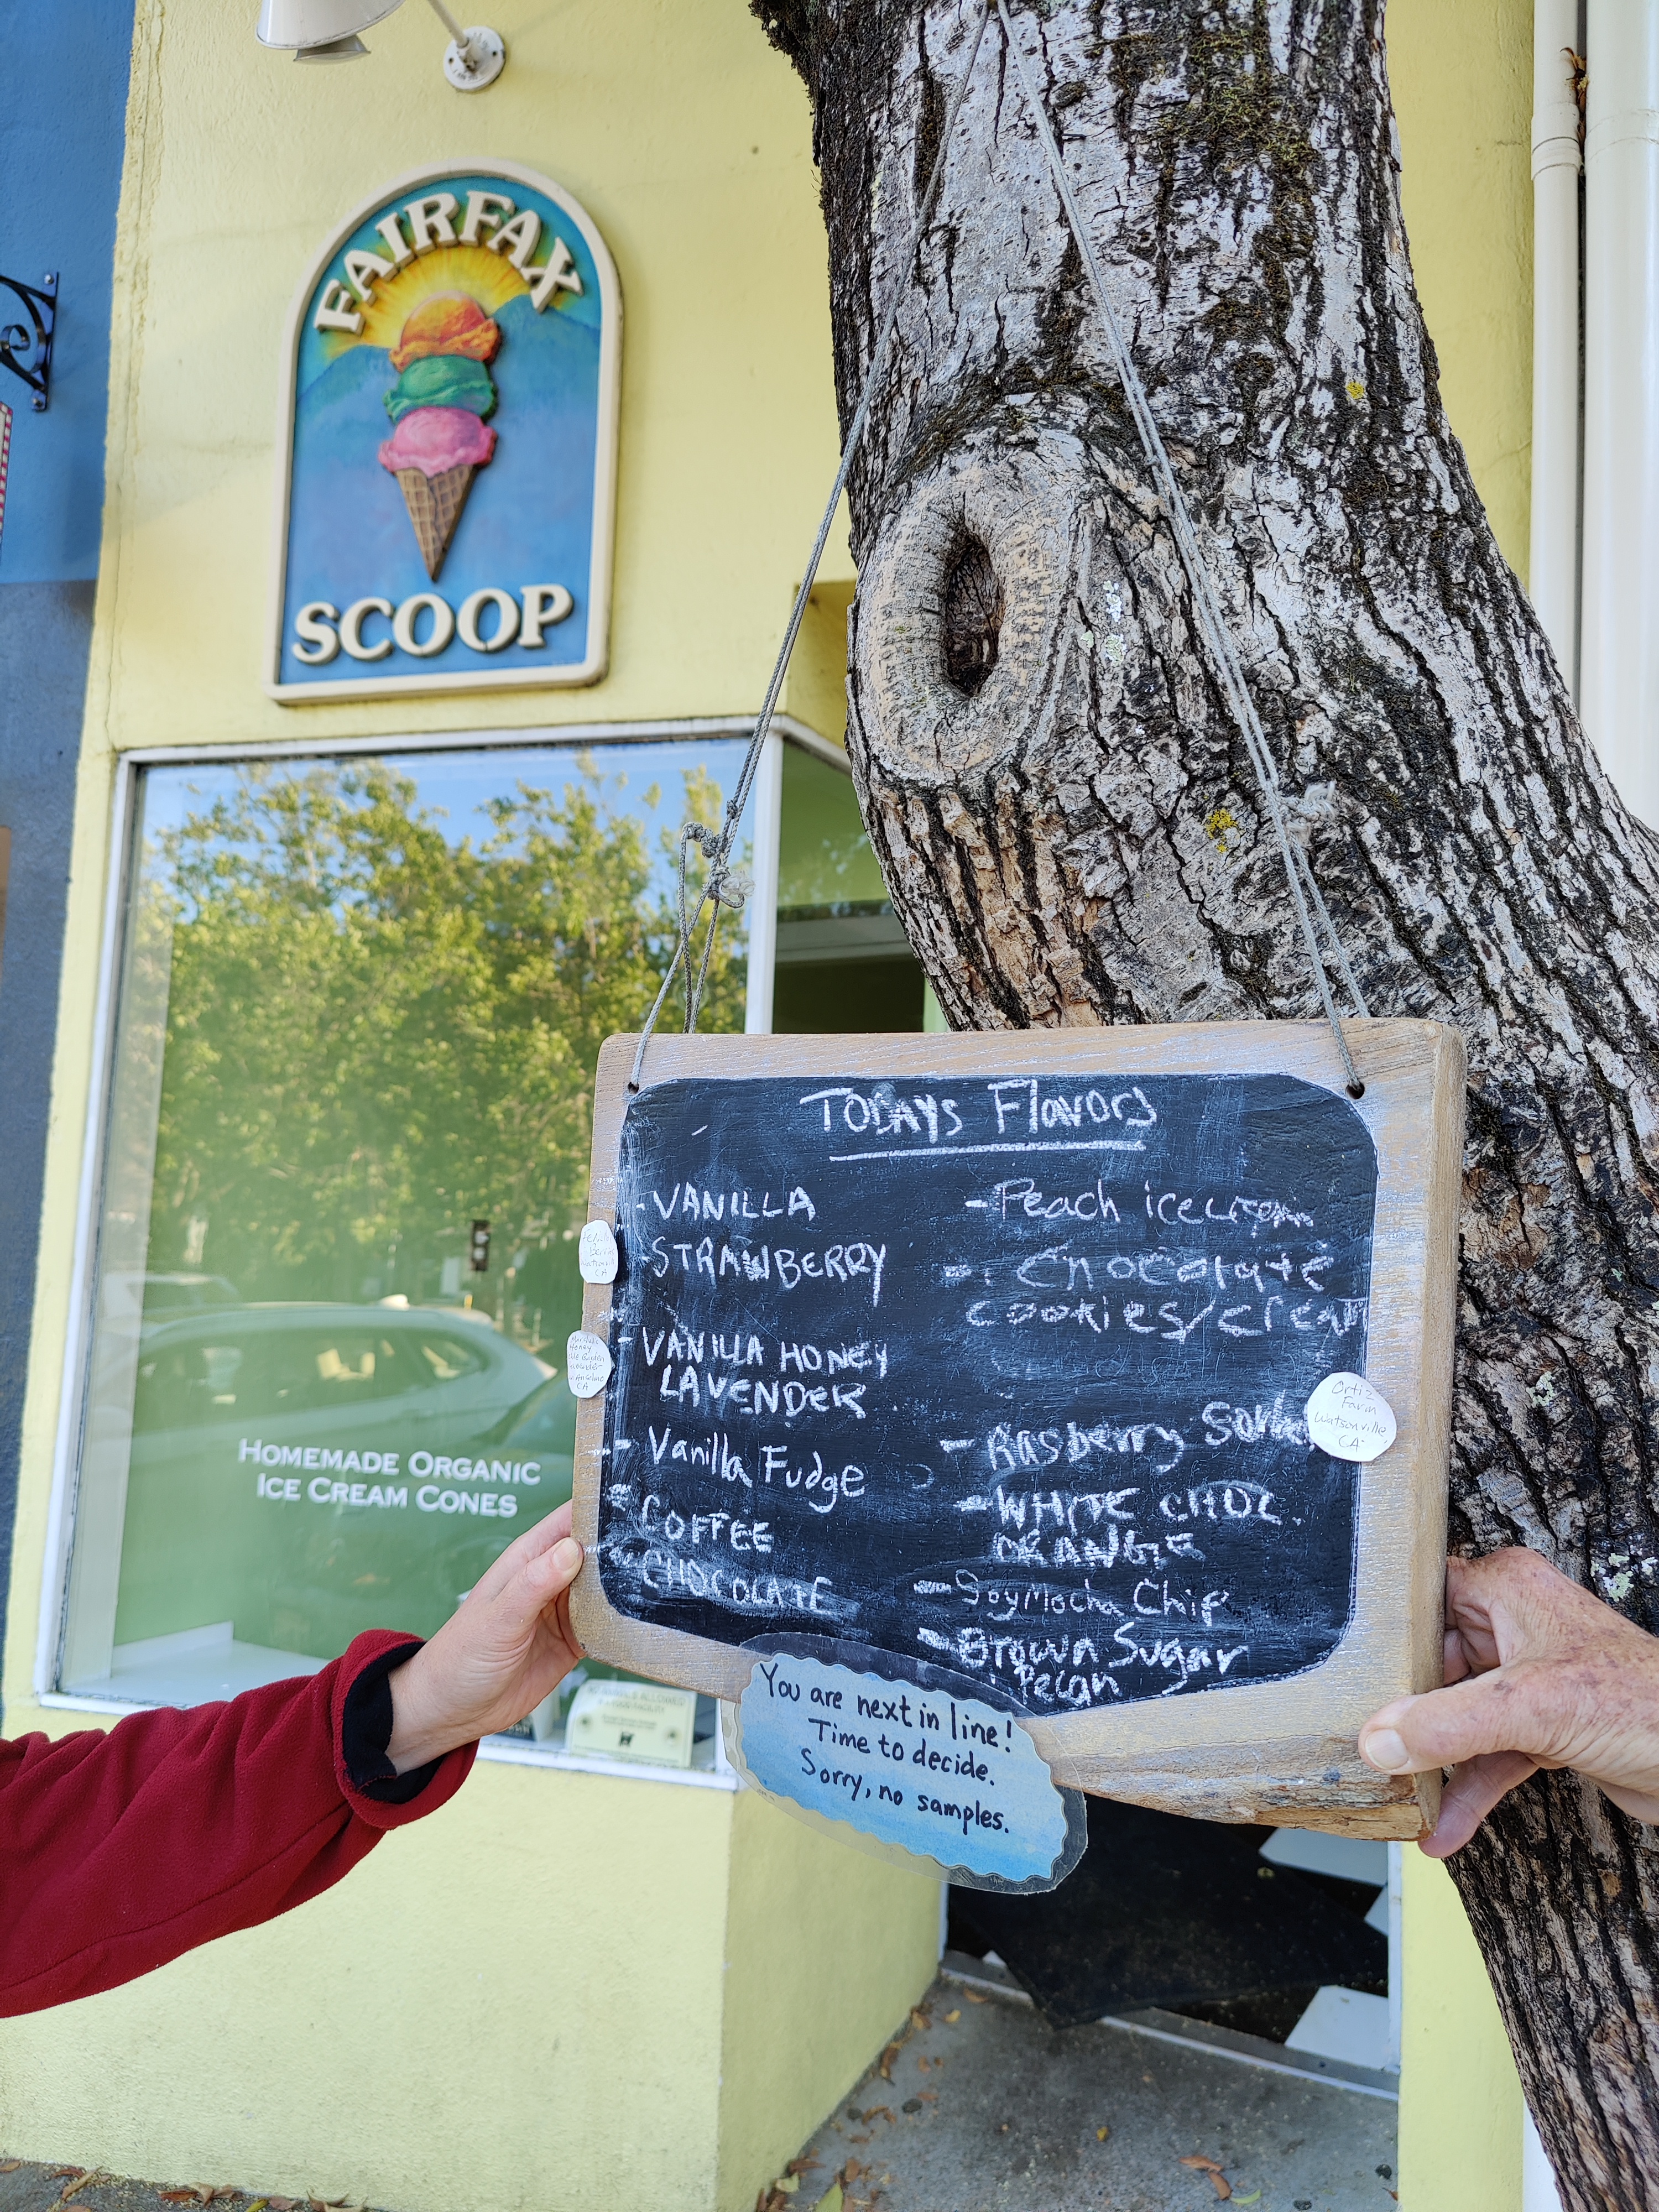 FAIRFAX
SCOOP
HOMEMADE ORGANIC
ICE CREAM CONES
TODAYS Flavors
-VANILLA
STRAWBERRY
-VANILLA HONEY
LAVENDER
- Vanilla Fudge
- COFFEE
- CHOCOLATE
- Peach icecream
- Chocolate
cookies/cream
- Rasberry
- WHITE CHOC.
ORANGE
- Soy Mocha Chip
- Brown Sugar
Pecan
Ortiz
Farm
Watsonville,
CA
Honey
CA
You are next in line!
Time to decide.
Sorry, no samples.